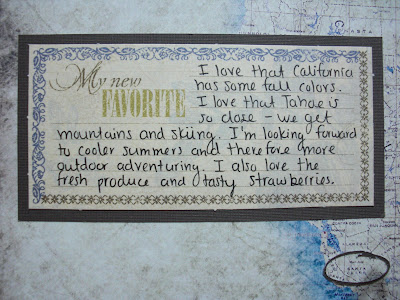 My new
FAVORITE
I love that California
has some fall colors.
I love that Tahoe is
so close - we get
mountains and skiing. I'm looking forward
to cooler summers and therefore more
outdoor adventuring. I also love the
fresh produce and tasty strawberries.